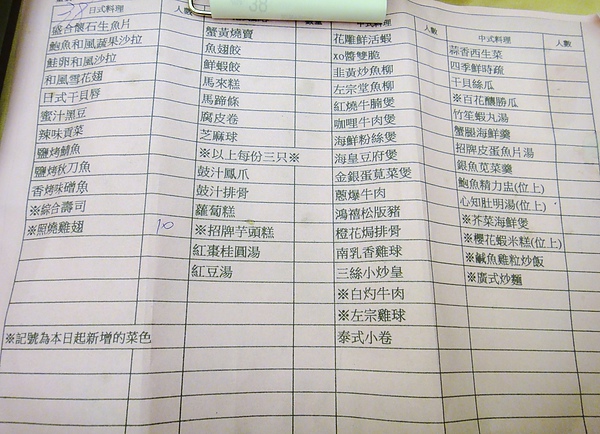 38 日式料理
盛合懷石生魚片
鮑魚和風蔬果沙拉
鮭卵和風沙拉
和風雪花翅
日式干貝唇
蜜汁黑豆
辣味貢菜
鹽烤鯖魚
鹽烤秋刀魚
香烤味噌魚
※綜合壽司
※照燒雞翅 10
※記號為本日起新增的菜色
38
蟹黃燒賣
魚翅餃
鮮蝦餃
馬來糕
馬蹄條
腐皮卷
芝麻球
※以上每份三只※
豉汁鳳爪
豉汁排骨
蘿蔔糕
※招牌芋頭糕
紅棗桂圓湯
紅豆湯
人數
花雕鮮活蝦
xo醬雙脆
韭黃炒魚柳
左宗堂魚柳
紅燒牛腩煲
咖哩牛肉煲
海鮮粉絲煲
海皇豆府煲
金銀蛋莧菜煲
蔥爆牛肉
鴻禧松版豬
橙花焗排骨
南乳香雞球
三絲小炒皇
※白灼牛肉
※左宗雞球
泰式小卷
人數
中式料理
蒜香西生菜
四季鮮時疏
干貝絲瓜
※百花釀勝瓜
竹笙蝦丸湯
蟹腿海鮮羹
招牌皮蛋魚片湯
銀魚莧菜羹
鮑魚精力盅(位上)
心知肚明湯(位上)
※芥菜海鮮煲
※櫻花蝦米糕(位上)
※鹹魚雞粒炒飯
※廣式炒麵
人數